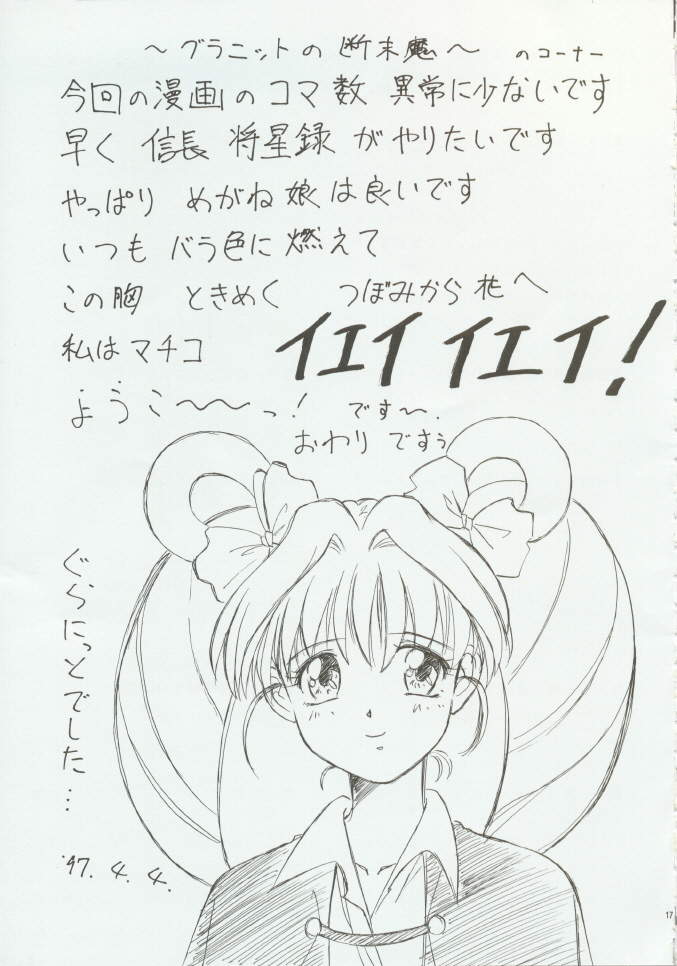 〜グラニットの断末魔〜 のコーナー
今回の漫画のコマ数 異常に少ないです
早く 信長 将星録 がやりたいです
やっぱり めがね娘は良いです
いつも バラ色に燃えて
この胸 ときめく つぼみから花へ
私はマチコ イエイイエイ!
ようこ〜〜っ! です〜.
おわり ですぅ
ぐらにっとでした…
'97. 4. 4.
17